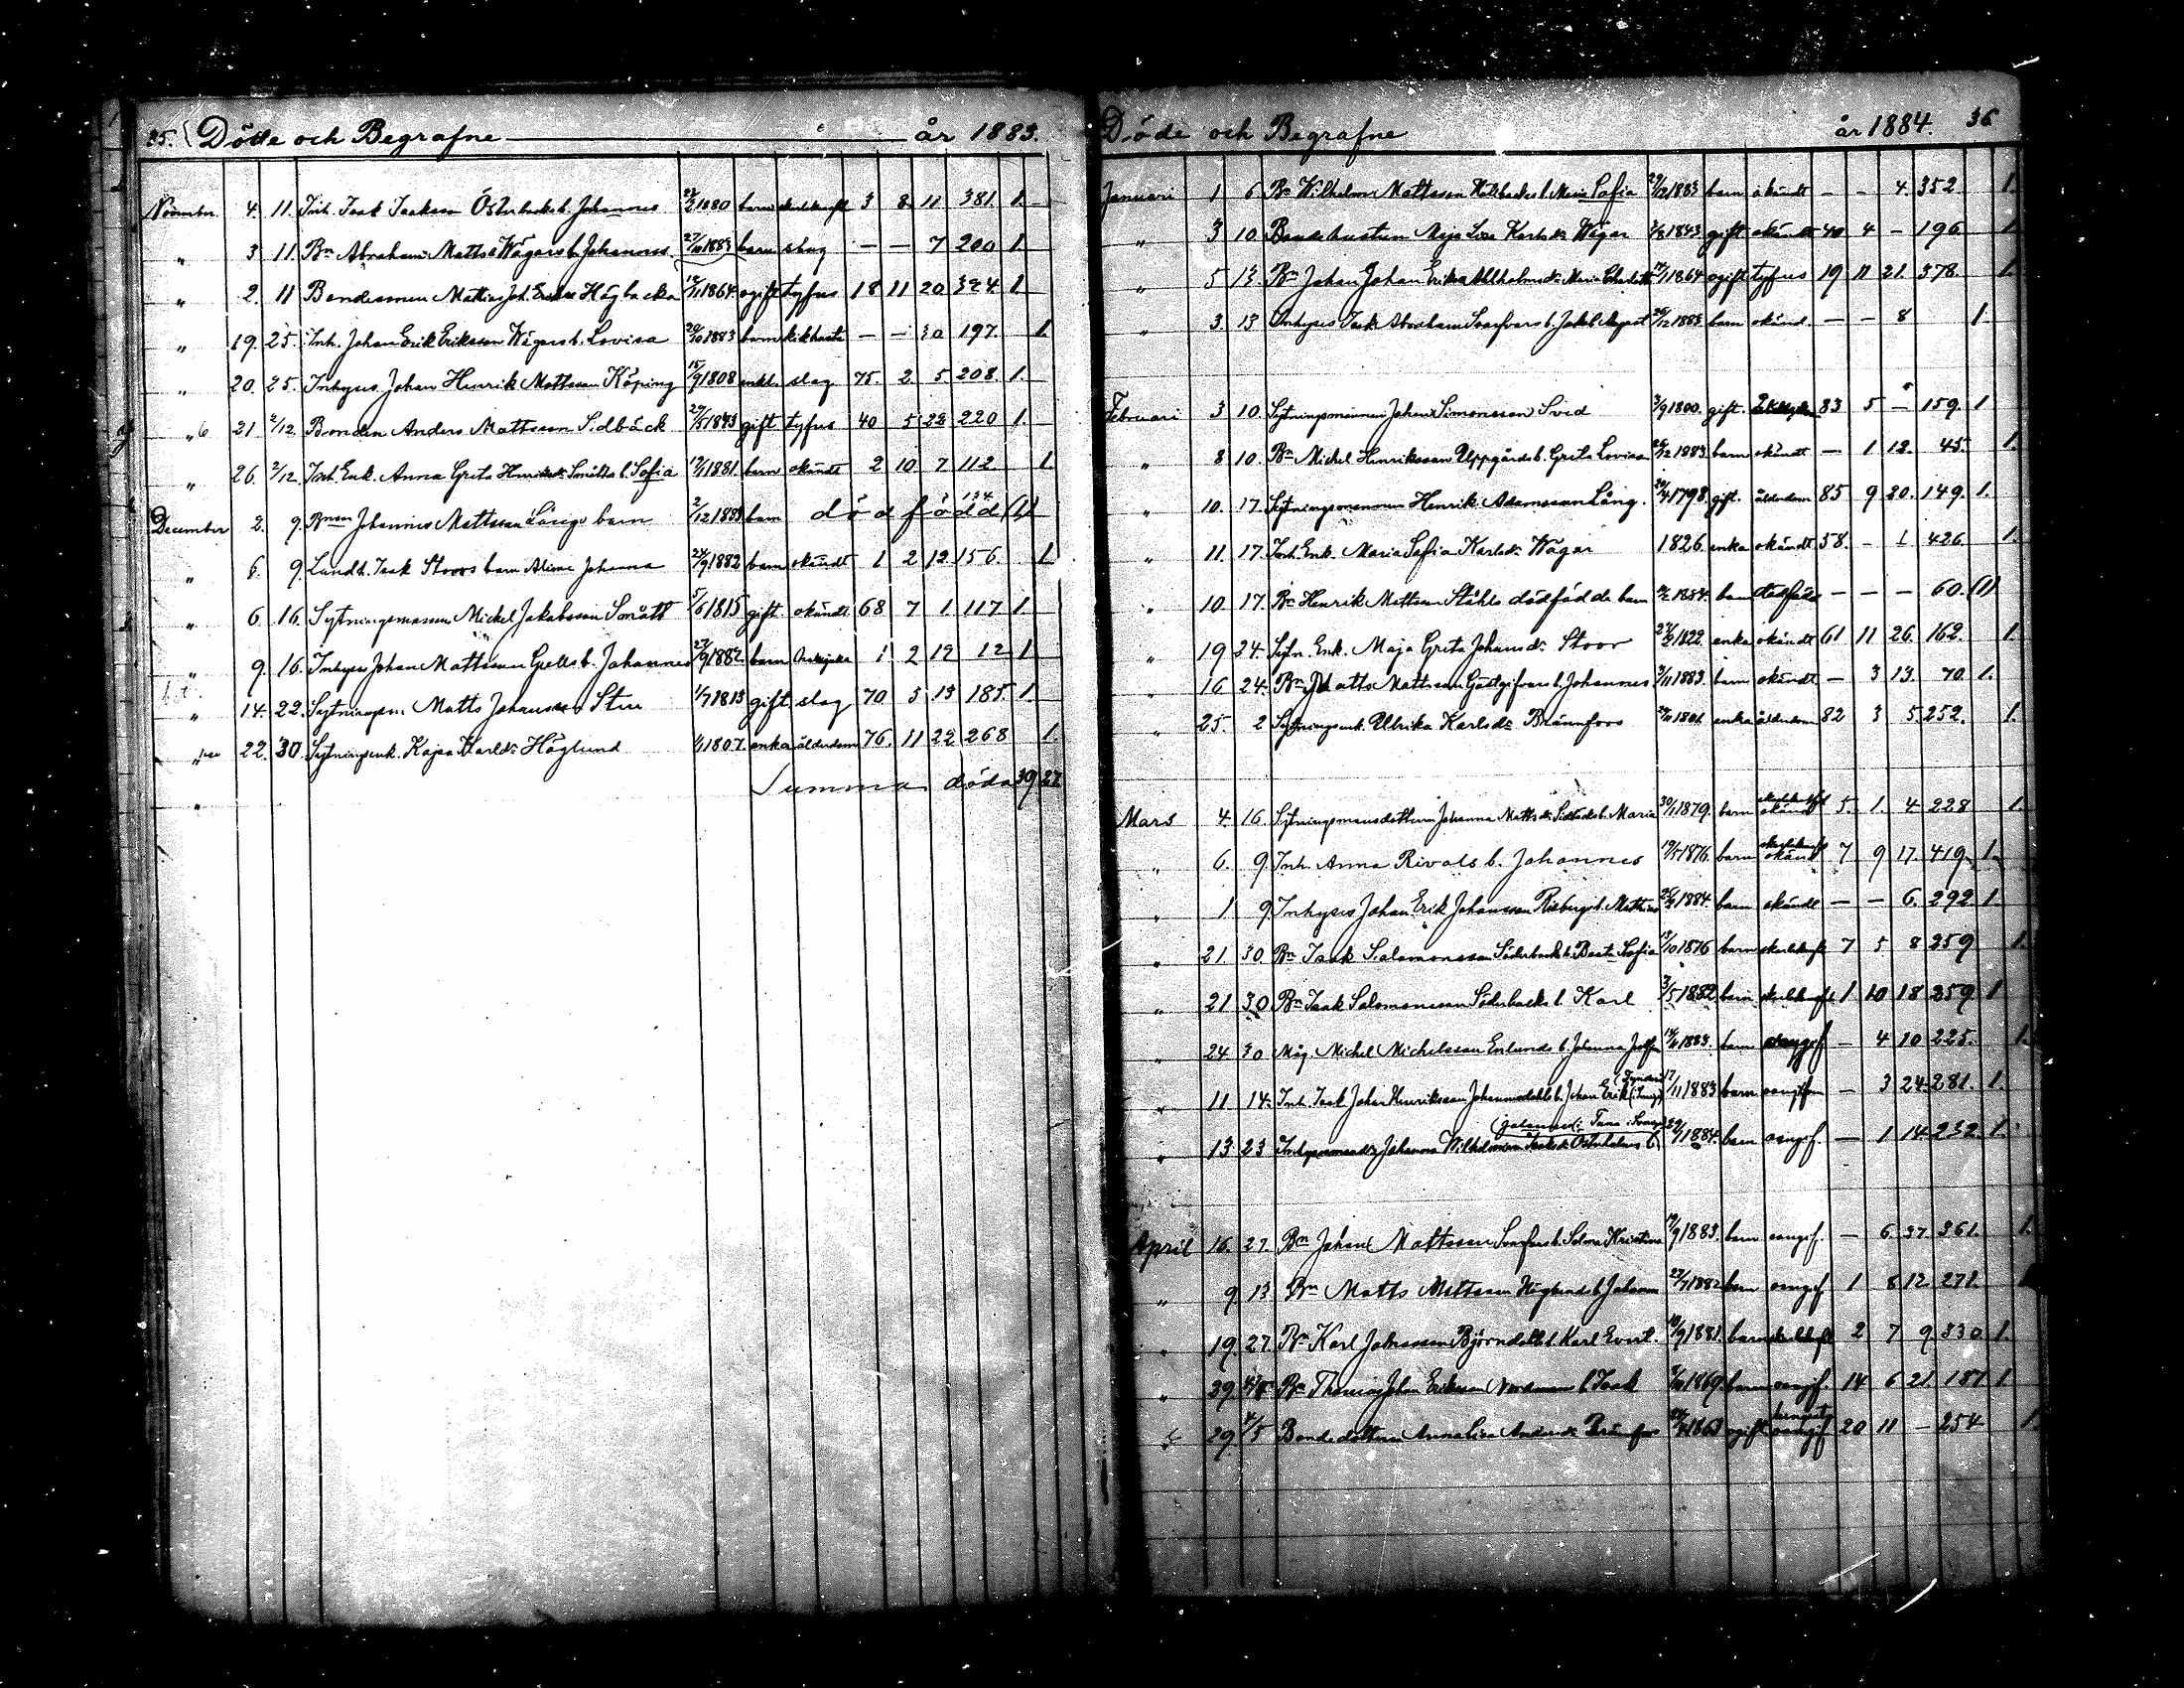 35. Döde och Begrafne år 1883.
November 4. 11. Inh. Isak Isaksson Österbacks b. Johannes 22/2 1880 barn skarlakansf. 3 8 11 381. 1.
" 3 11. Bn Abraham Matts Wägars b. Johannes 27/10 1883 barn slag — — 7 200 1.
" 2. 11 Bondesonen Mathias Joh. Högbacka 12/11 1864 ogift tyfus 18 11 20 324 1.
" 19. 25. Inh. Johan Erik Eriksson Wägars b. Lovisa 20/10 1883 barn kikhosta — — 30 197. 1.
" 20. 25. Inhyses Johan Henrik Mattsson Köping 15/9 1808 enkl. slag 75. 2. 5. 208. 1.
" 21 2/12. Bonden Anders Mattsson Sidbäck 29/5 1843 gift tyfus 40 5 22 220 1.
" 26. 2/12. Inh. Enk. Anna Greta Smätts b. Sofia 19/1 1881. barn okändt 2 10 7 112. 1.
December 2. 9. Bonden Johannes Mattsson Långs barn 2/12 1883 barn dödfödd 134 (1)
" 6. 9. Landb. Isak Stoors barn Alina Johanna 24/9 1882 barn okändt 1 2 12 156. 1.
" 6 16. Sytningsmannen Mickel Jakobsson Smått 5/5 1815 gift. okändt. 68 7 1. 117 1.
" 9. 16. Inhyses Johan Mattsson Gulls b. Johannes 27/9 1882. barn 1. 2 12 12 1
" 14. 22. Sytningsm. Matts Johansson Stu 1/7 1813 gift. slag 70 5 13 185. 1.
" 22. 30. Sytningsenk. Kajsa Karlsdr Höglund 1/1 1807. enka ålderdom 76. 11 22 268 1.
Summa döda 39 27
Döde och Begrafne år 1884. 36
Januari 1 6. Bn Wilhelm Mattsson b. Maria Sofia 29/12 1883 barn okändt — — 4. 352. 1.
" 3 10. Bondehustrun Maja Lisa Karlsdr Wägar 3/8 1843 gift okändt 40 4 — 196 1
" 5 13. Bn Johan Johan Eriks dr Maria Charlotta 1864 ogift tyfus 19 11 21. 378. 1.
" 3 13 Inhyses Isak Abraham b. Jakob August 26/12 1883 barn okänd. — — 8 1.
Februari 3 10. Sytningsmannen Johan Simonsson Svid 3/9 1800. gift. 83 5 — 159. 1
" 8 10. Bn Michel Henriksson Uppgårds b. Greta Lovisa 26/12 1883. barn okändt — 1 12. 45. 1.
" 10. 17. Sytningsmannen Henrik Adamsson Lång. 20/4 1798. gift. ålderdom 85 9 20. 149. 1.
" 11. 17. Inh. Enk. Maria Sofia Karlsdr Wägar 1826 enka okändt 58. — 1 426. 1.
" 10. 17. Bn Henrik Mattsson Ståhls dödfödde barn 10/2 1884. barn dödfödd — — — 60. (1)
" 19 24. Sytn. Enk. Maja Greta Johansdr Stoor 1822. enka okändt 61 11 26. 162. 1.
" 16 24. Bn Matts Mattsson Gästgifvars b. Johannes 3/11 1883. barn okändt — 3 13. 70. 1.
" 25. 2 Sytningsenk. Ulrika Karlsdr Brännfors 20/11 1801. enka ålderdom 82 3 5. 252. 1.
Mars 4. 16. Sytningsmansdottern Johanna Mattsdr Sidbäcks b. Maria 30/1 1879. barn okänd 5. 1. 4. 228 1.
" 6. 9 Inh. Anna Rivals b. Johannes 19/5 1876. barn okänd 7 9 17. 419. 1.
" 1 9 Inhyses Johan Erik Johansson b. Mathias 25/2 1884. barn okändt — — 6. 292 1
" 21. 30. Bn Isak Salomonsson Söderbacks b. Beata Sofia 13/10 1876 barn skarlakansf. 7 5 8 259 1.
" 21 30 Bn Isak Salomonsson Söderbacks b. Karl 3/5 1882 barn skarlakansf. 1 10 18 259 1
" 24. 30 Måg. Michel Michelsson Enlunds b. Johanna 14/11 1883. barn oangif. — 4 10 225. 1.
" 11 14. Inh. Isak Johan Henriksson b. Johan Erik 17/11 1883 barn oangifven — 3 24 281. 1.
" 13 23 Johanna Wilhelmina Isaksdr Österholms b. 29/1 1884. barn oangif. — 1 14 232. 1.
April 16. 27. Bn Johan Mattsson b. Selma Kristina 10/9 1883. barn oangif. — 6 37. 361. 1.
" 9. 13 Bn Matts Mattsson Höglunds b. Johanna 27/7 1882 barn oangif 1 8 12 271.
" 19. 27. Bn Karl Johansson Björndals b. Karl Evert. 10/9 1881. barn skarlakansf. 2 7 9. 330 1.
" 29. Bn Thomas Johan Eriksson Nordmans b. Isak 1869. barn oangif. 14 6 21. 187 1.
" 29 4/5 Bondedottern Anna Lisa Andersdr Brännfors 1863 ogift oangif 20 11 — 254 1.